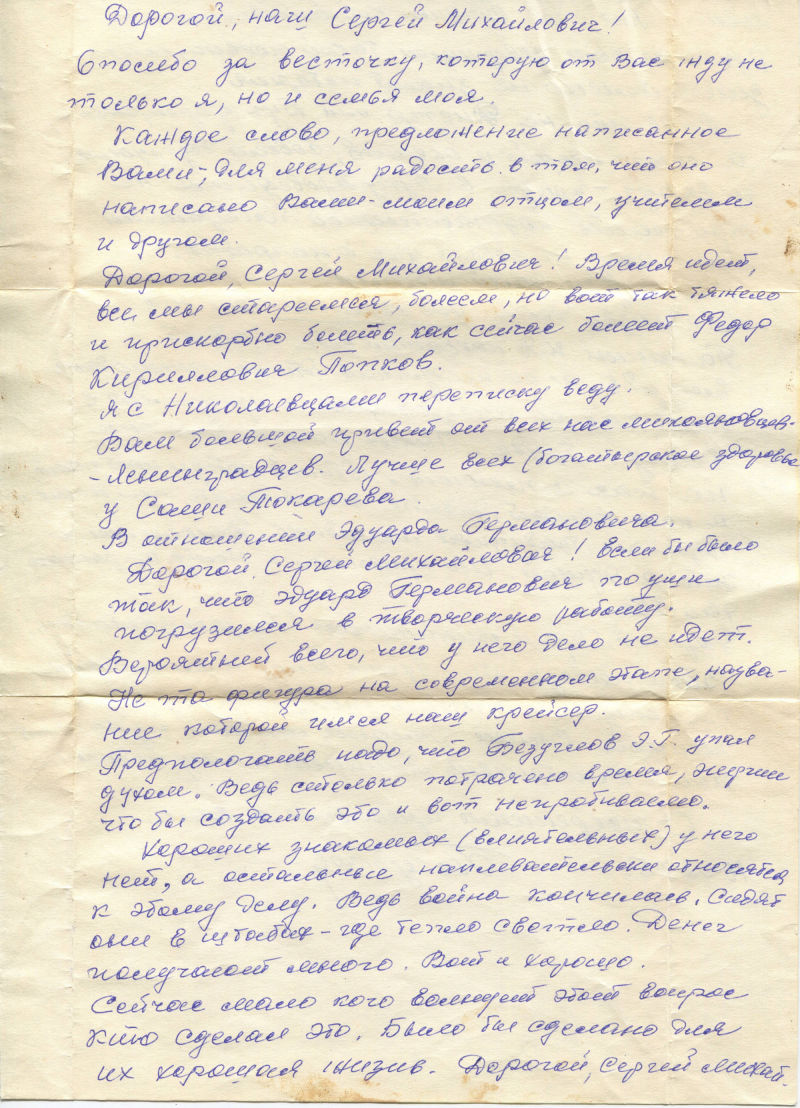 Дорогой, наш Сергей Михайлович!
Спасибо за весточку, которую от Вас жду не
только я, но и семья моя.
Каждое слово, предложение написанное
Вами-, для меня радость в том, что оно
написано Вами-моим отцом, учителем
и другом.
Дорогой, Сергей Михайлович! Время идет,
все мы стареемся, болеем, но вот так тяжело
и прискорбно болеть, как сейчас болеет Федор
Кириллович Попков.
Я с Николаевцами переписку веду.
Вам большой привет от всех нас микояновцев-
-Ленинградцев. Лучше всех (богатырское здоровье
у Саши Токарева.
В отношении Эдуарда Германовича.
Дорогой, Сергей Михайлович! Если бы было
так, что Эдуард Германович по уши
погрузился в творческую работу.
Вероятней всего, что у него дело не идет.
Не та фигура на современном этапе, назва-
ние которой имел наш крейсер.
Предпологать надо, что Безуглов Э.Г. упал
духом. Ведь столько потрачено время, энергии
что бы создать это и вот непробиваемо.
Хороших знакомых (влиятельных) у него
нет, а остальные наплевательски относятся
к этому делу. Ведь война кончилась. Сидят
они в штабах-где тепло светло. Денег
получают много. Вот и хорошо.
Сейчас мало кого волнует этот вопрос
кто сделал это. Было бы сделано для
их хорошая жизнь. Дорогой, Сергей Михай-